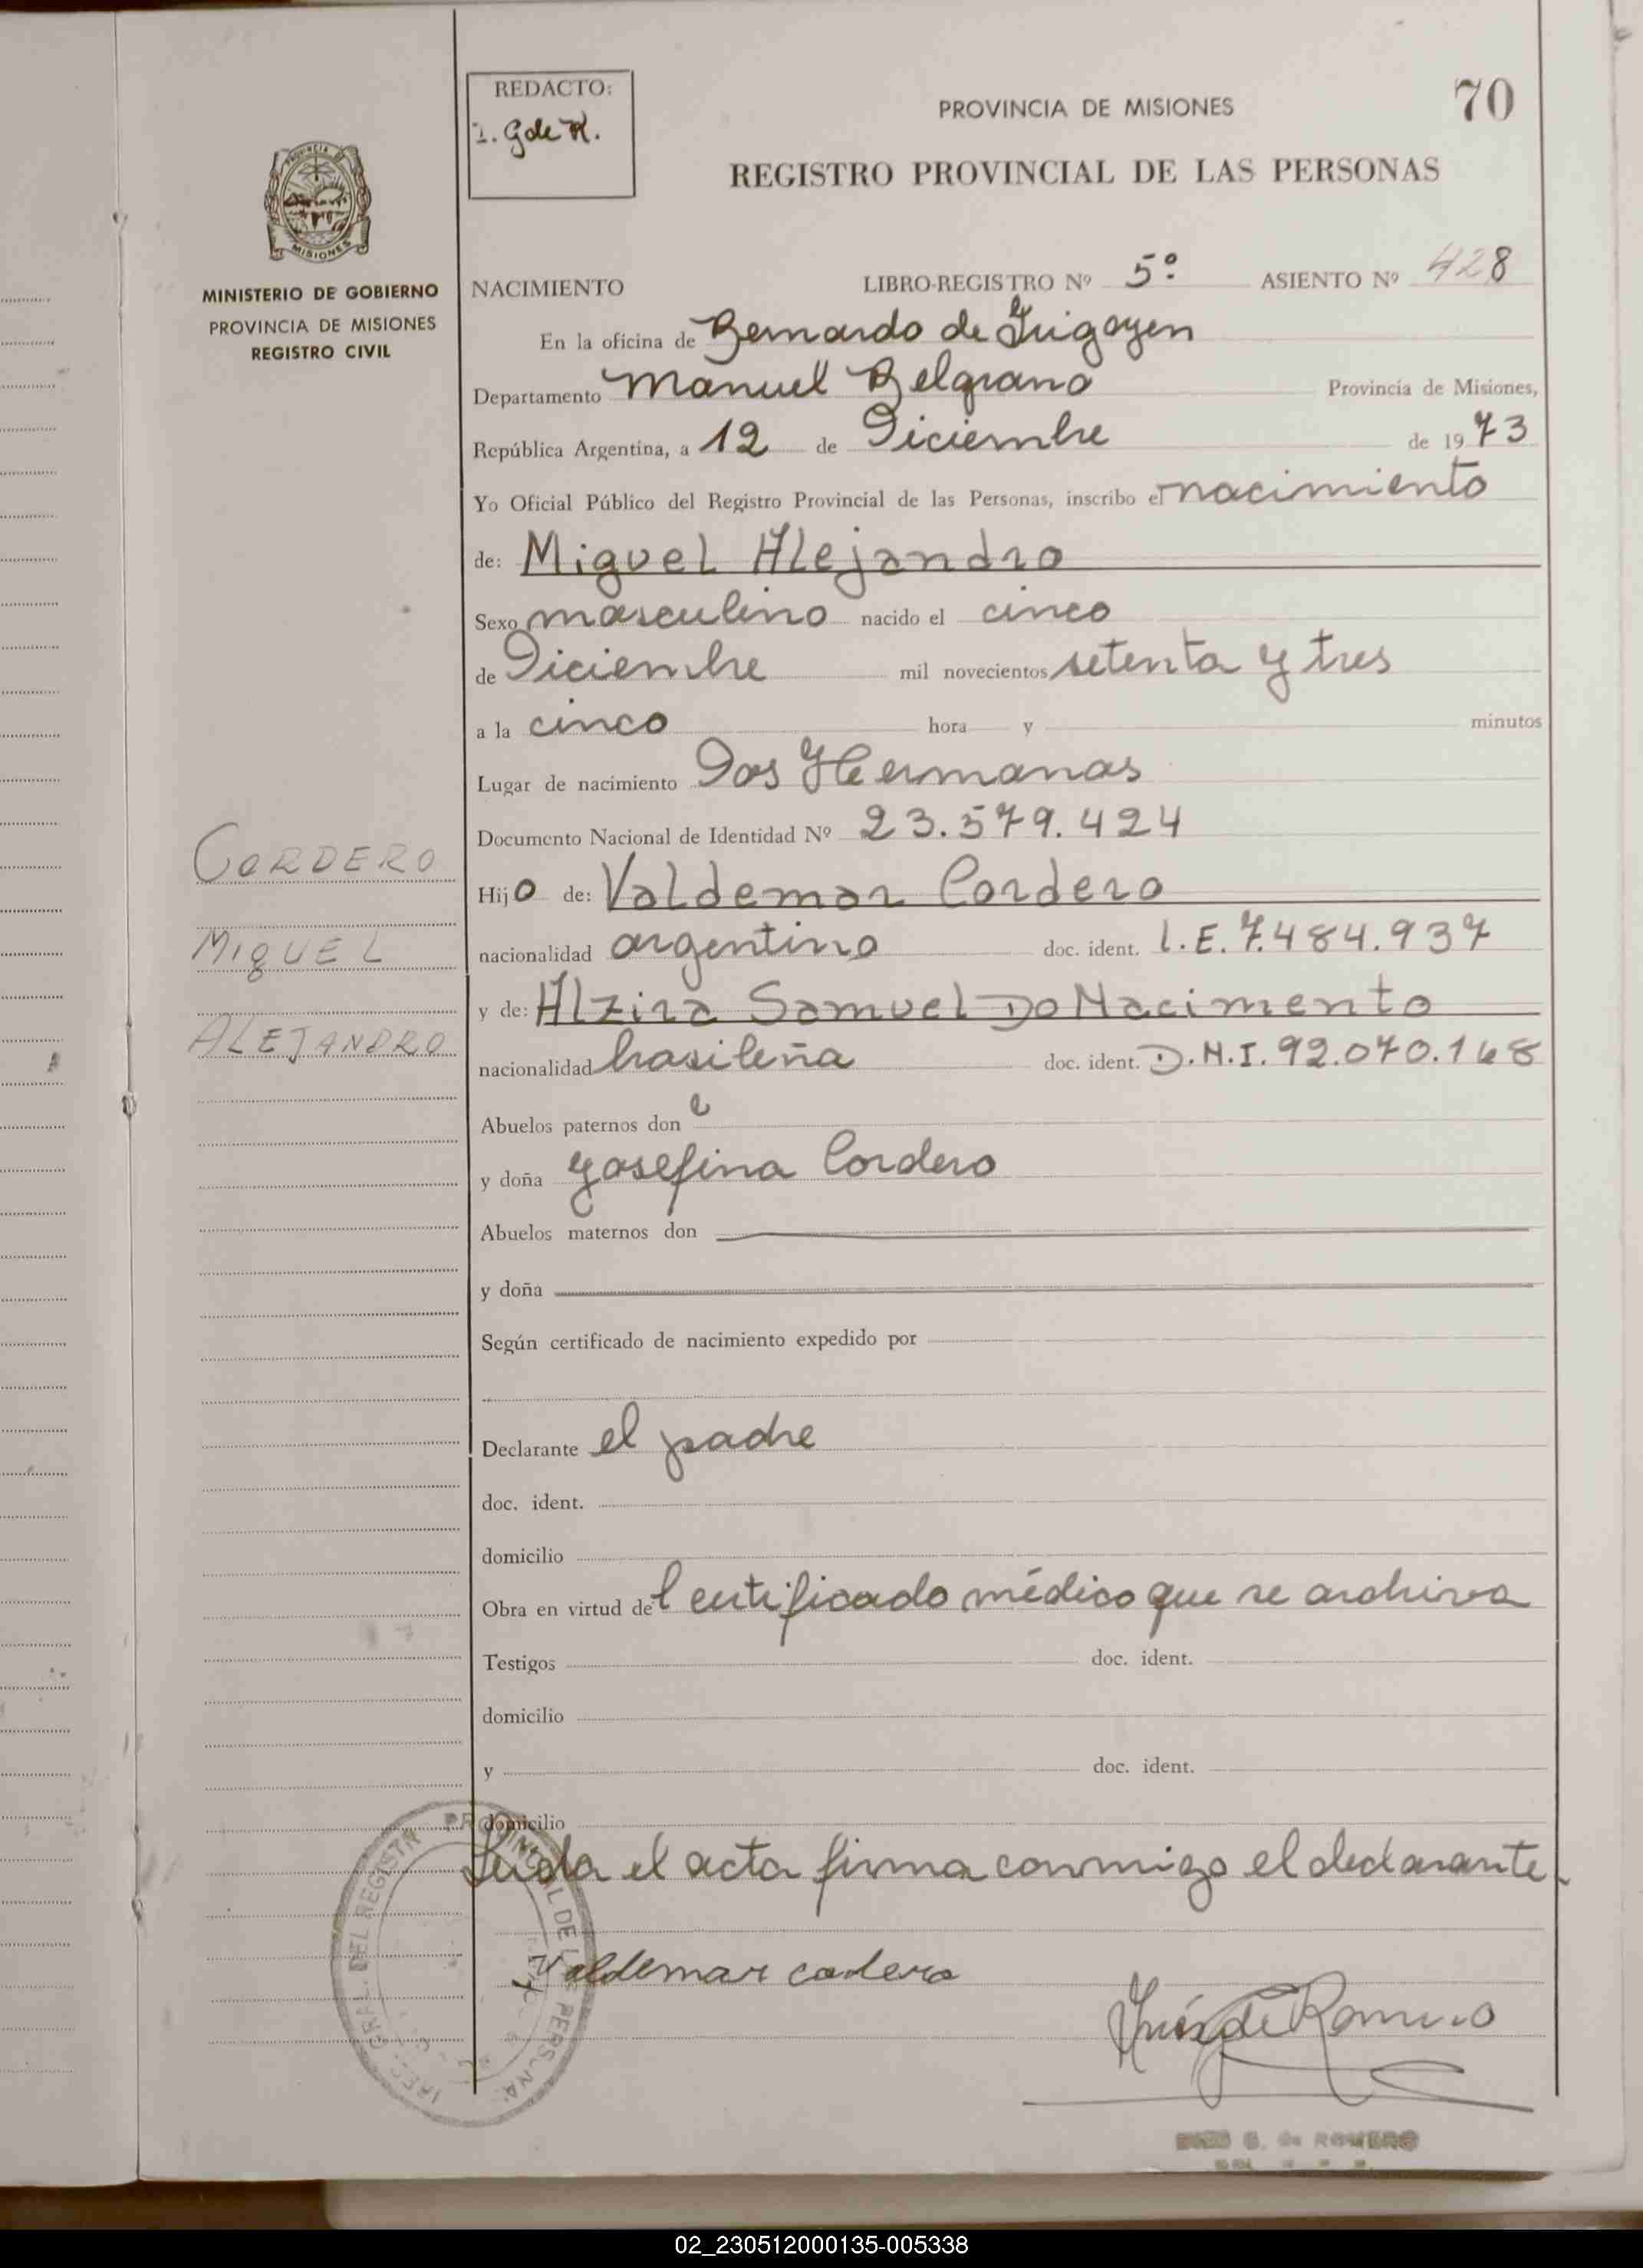 REDACTO:
I. G de R.
PROVINCIA DE MISIONES
70
REGISTRO PROVINCIAL DE LAS PERSONAS
PROVINCIA DE
MISIONES
MINISTERIO DE GOBIERNO
PROVINCIA DE MISIONES
REGISTRO CIVIL
NACIMIENTO LIBRO-REGISTRO Nº 5º ASIENTO Nº 428
En la oficina de Bernardo de Irigoyen
Departamento Manuel Belgrano Provincia de Misiones,
República Argentina, a 12 de Diciembre de 1973
Yo Oficial Público del Registro Provincial de las Personas, inscribo el nacimiento
de: Miguel Alejandro
Sexo masculino nacido el cinco
de Diciembre mil novecientos setenta y tres
a la cinco hora y minutos
Lugar de nacimiento Dos Hermanas
Documento Nacional de Identidad Nº 23.579.424
CORDERO
Hijo de: Valdemar Cordero
MIGUEL
nacionalidad argentino doc. ident. L.E. 7.484.937
y de: Alzira Samuel Do Nacimento
ALEJANDRO
nacionalidad brasileña doc. ident. D.N.I. 92.070.168
Abuelos paternos don
y doña Josefina Cordero
Abuelos maternos don
y doña
Según certificado de nacimiento expedido por
Declarante el padre
doc. ident.
domicilio
Obra en virtud del certificado médico que se archiva
Testigos doc. ident.
domicilio
y doc. ident.
domicilio
Leida el acta firma conmigo el declarante.
Valdemar cordero
Inés G de Romero
G. de ROMERO
GRAL. DEL REGISTR PROVINCIAL DE LAS PERSONA
02_230512000135-005338